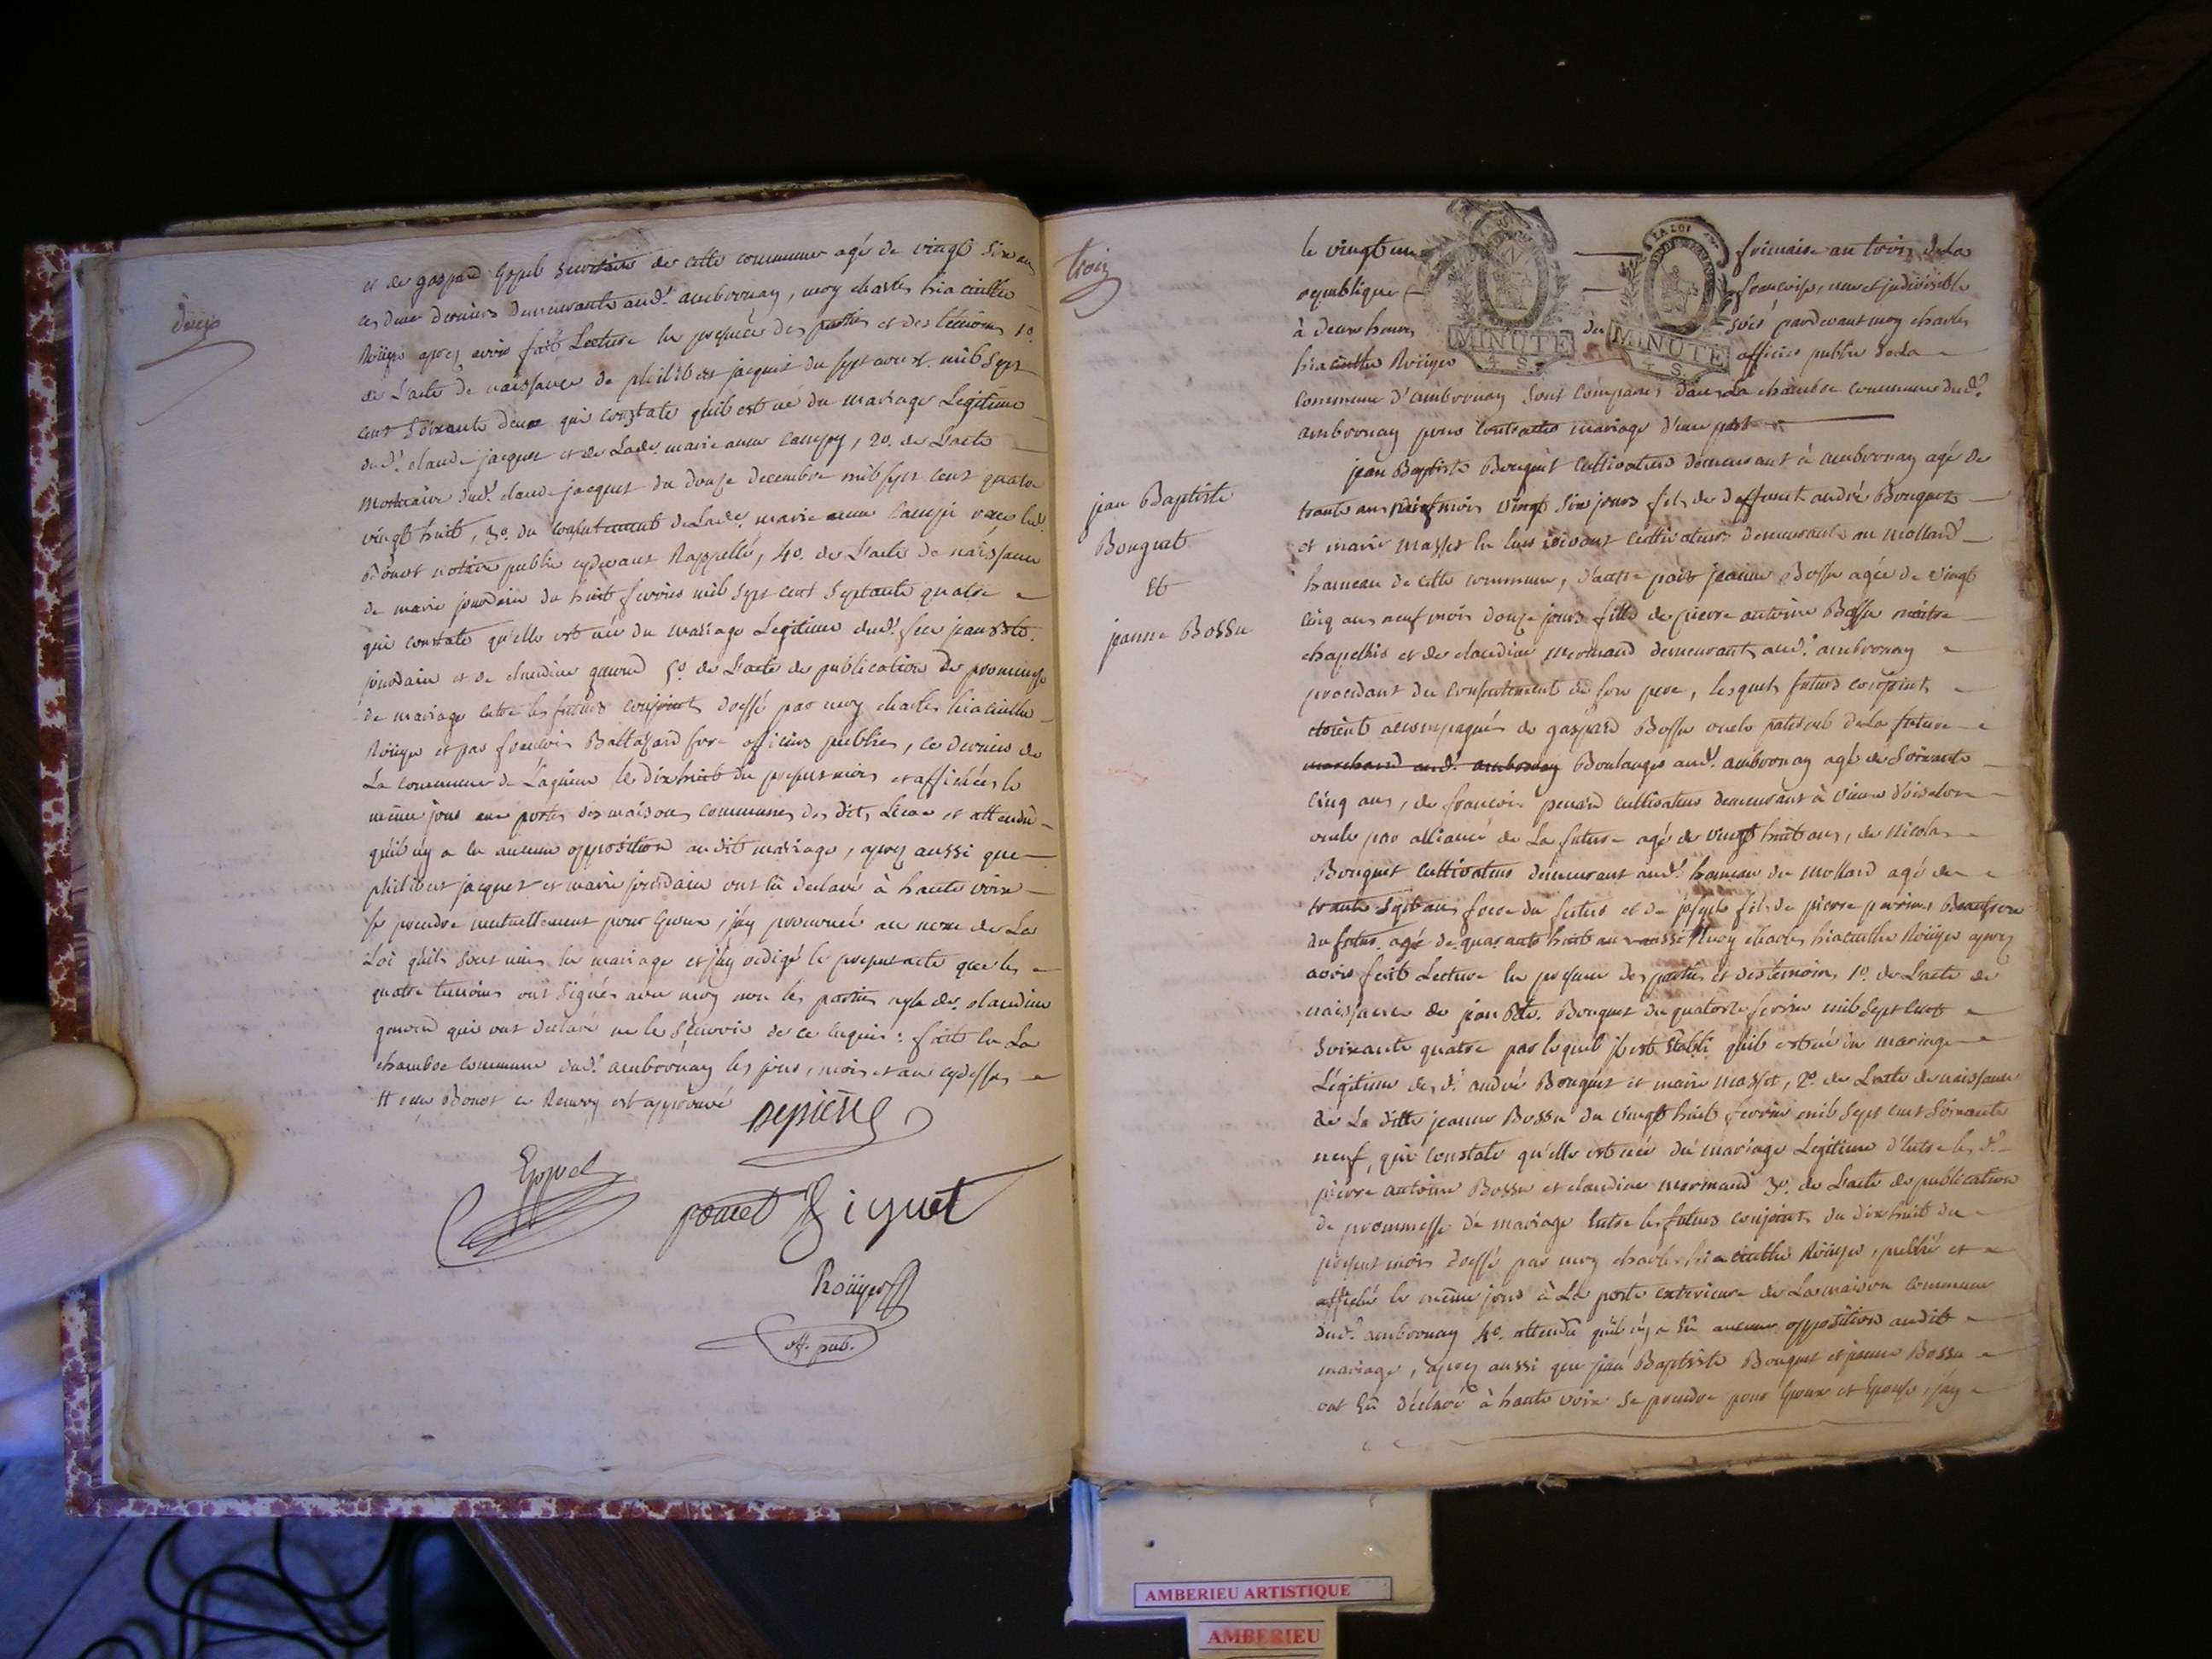 deux
et de gaspard Eppel secretaire de cette commune agé de vingt six ans
ces deux derniers demeurants aud.t ambronay, moy charles hiacinthe
Roüyer aprez avoir fait Lecture en presence des parties et des témoins 1.o
de L'acte de naissance de philibert jacquet du sept aoust mil sept
cent soixante deux qui constate qu'il est né du mariage Legitime
dud.t claude jacquet et de Lade. marie anne campy, 2o. de L'acte
mortuaire dud.t claude jacquet du douze decembre mil sept cent quatre
vingt huit, 3o. du consentement de Lade. marie anne
Bonot notaire public cydevant Rappellé, 4o. de L'acte de naissance
de marie jourdain du huit fevrier mil sept cent septante quatre
qui constate qu'elle est née du mariage Legitime dud.t feu jean Bte.
jourdain et de claudine 5o. de L'acte de publication de promesse
de mariage entre les futurs conjoints dressé par moy charles hiacinthe
Roüyer et par francois Baltazard officiers publics, ce dernier de
La commune de Lagnieu le dix huit du present mois et affichées le
même jour aux portes des maisons communes des dits Lieux et attendu
qu'il n'y a eu aucune opposition audit mariage, aprez aussi que
philibert jacquet et marie jourdain ont eû declaré à haute voix
se prendre mutuellement pour Epoux, j'ay prononcé au nom de La
Loi qu'ils sont unis en mariage et j'ay redigé le present acte que les
quatre temoins ont signés avec moy non les parties ny lade. claudine
qui ont declaré ne le sçavoir de ce enquis : fait en La
chambre commune dud.t ambronay les jour, mois et an cydessus
Bonot en Renvoy est approuvé
Depierre
Eppel
poncet Biguet
Roüyer
off. pub.
trois
le vingt un frimaire an trois de La
republique francoise, une et indivisible
à deux heures du soir pardevant moy charles
hiacinthe Roüyer officier public de La
commune d'ambronay sont comparus dans La chambre commune dud.t
ambronay pour contracter mariage d'une part
jean Baptiste
Bouguet
Et
jeanne Bossu
jean Baptiste Bouguet cultivateur demeurant à ambronay agé de
trante ans neuf mois vingt six jours fils de deffunt andré Bouguet
et marie Masset en leur vivant cultivateurs demeurants au mollard
hameau de cette commune, d'autre part jeanne Bossu agée de vingt
cinq ans neuf mois douze jours fille de pierre antoine Bossu maitre
chapellier et de claudine mermand demeurants aud.t ambronay
procedant du consentement de son pere, lesquels futurs conjoints
étoient accompagnés de gaspard Bossu oncle paternel de La future
marchand aud.t ambronay Boulanger aud.t ambronay agé de soixante
cinq ans, de francois penard cultivateur demeurant à vieux d'izelon
oncle par alliance de La future agé de vingt huit ans, de nicolas
Bouguet cultivateur demeurant aud.t hameau du mollard agé de
trante sept ans frere du futur et de joseph fils de pierre Beaufrere
du futur, agé de quarante huit ans aussi Moy charles hiacinthe Roüyer aprez
avoir fait Lecture en presence des parties et des temoins, 1o. de L'acte de
naissance de jean Bte. Bouguet du quatorze fevrier mil sept cent
soixante quatre par lequel il est Etabli qu'il est né du mariage
Légitime des d.t andré Bouguet et marie Masset, 2o. de L'acte de naissance
de La ditte jeanne Bossu du vingt huit fevrier mil sept cent soixante
neuf, qui constate qu'elle est née du mariage Legitime d'entre les d.t
pierre antoine Bossu et claudine mermand 3o. de L'acte de publication
de prommesse de mariage entre les futurs conjoints du dix huit du
present mois dressé par moy charles hiacinthe Roüyer, publié et
affiché le même jour à La porte exterieure de La maison commune
dud.t ambronay 4o. attendu qu'il n'y a Eû aucune opposition audit
mariage, aprez aussi que jean Baptiste Bouguet et jeanne Bossu
ont Eû déclaré à haute voix se prendre pour Epoux et Epouse, j'ay
LA LOI
MINUTE
4 S.
MINUTE
4 S.
AMBERIEU ARTISTIQUE
AMBERIEU